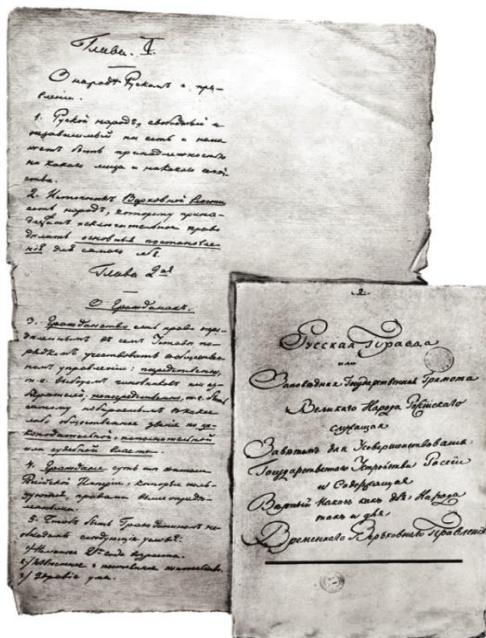 Глава. I.
О народѣ Рускомъ и пра-
вленіи.
1. Руской народъ, свободный и
независимый не есть и не мо-
жетъ быть принадлежностью
ни какого лица и никакого семей-
ства.
2. Источникъ Верховной Власти
есть народъ, которому прина-
длежитъ исключительное право
дѣлать основныя постановле-
нія для самого себя.
Глава 2ая
О Гражданахъ.
3. Гражданство есть право опре-
дѣленнымъ въ семъ Уставѣ по-
рядкомъ участвовать въ обществен-
номъ управленіи: посредственно,
т. е. выборомъ чиновниковъ или из-
бирателей; непосредственно, т. е. быть
самому избираемымъ въ какое
либо общественное званіе по за-
конодательной, исполнительной
или судебной власти.
4. Граждане суть тѣ жители
Россійской Имперіи, которые поль-
зуются правами выше опредѣ-
ленными.
5. Чтобъ быть Гражданиномъ не-
обходимы слѣдующія условія:
лѣтъ возраста.
здравіе ума.
2.
Русская Правда
или
Заповѣдная Государственная Грамота
Великаго Народа Россійскаго
служащая
Завѣтомъ для Усовершенствованія
Государственнаго Устройства Россіи
и Содержащая
Вѣрный Наказъ какъ для Народа
такъ и для
Временнаго Верьховнаго Правленія